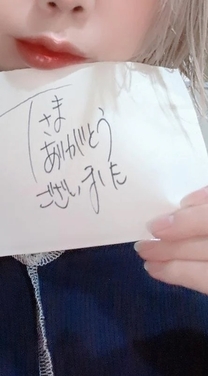 さま
ありがとう
ございました